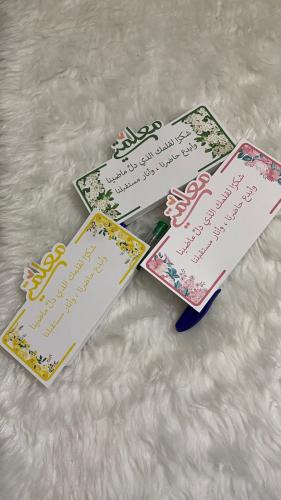 معلمتي
شكرًا لقلمك الذي دلّ ماضينا
وأبدع حاضرنا ، وأنار مستقبلنا
معلمتي
شكرًا لقلمك الذي دلّ ماضينا
وأبدع حاضرنا ، وأنار مستقبلنا
معلمتي
شكرًا لقلمك الذي دلّ ماضينا
وأبدع حاضرنا ، وأنار مستقبلنا